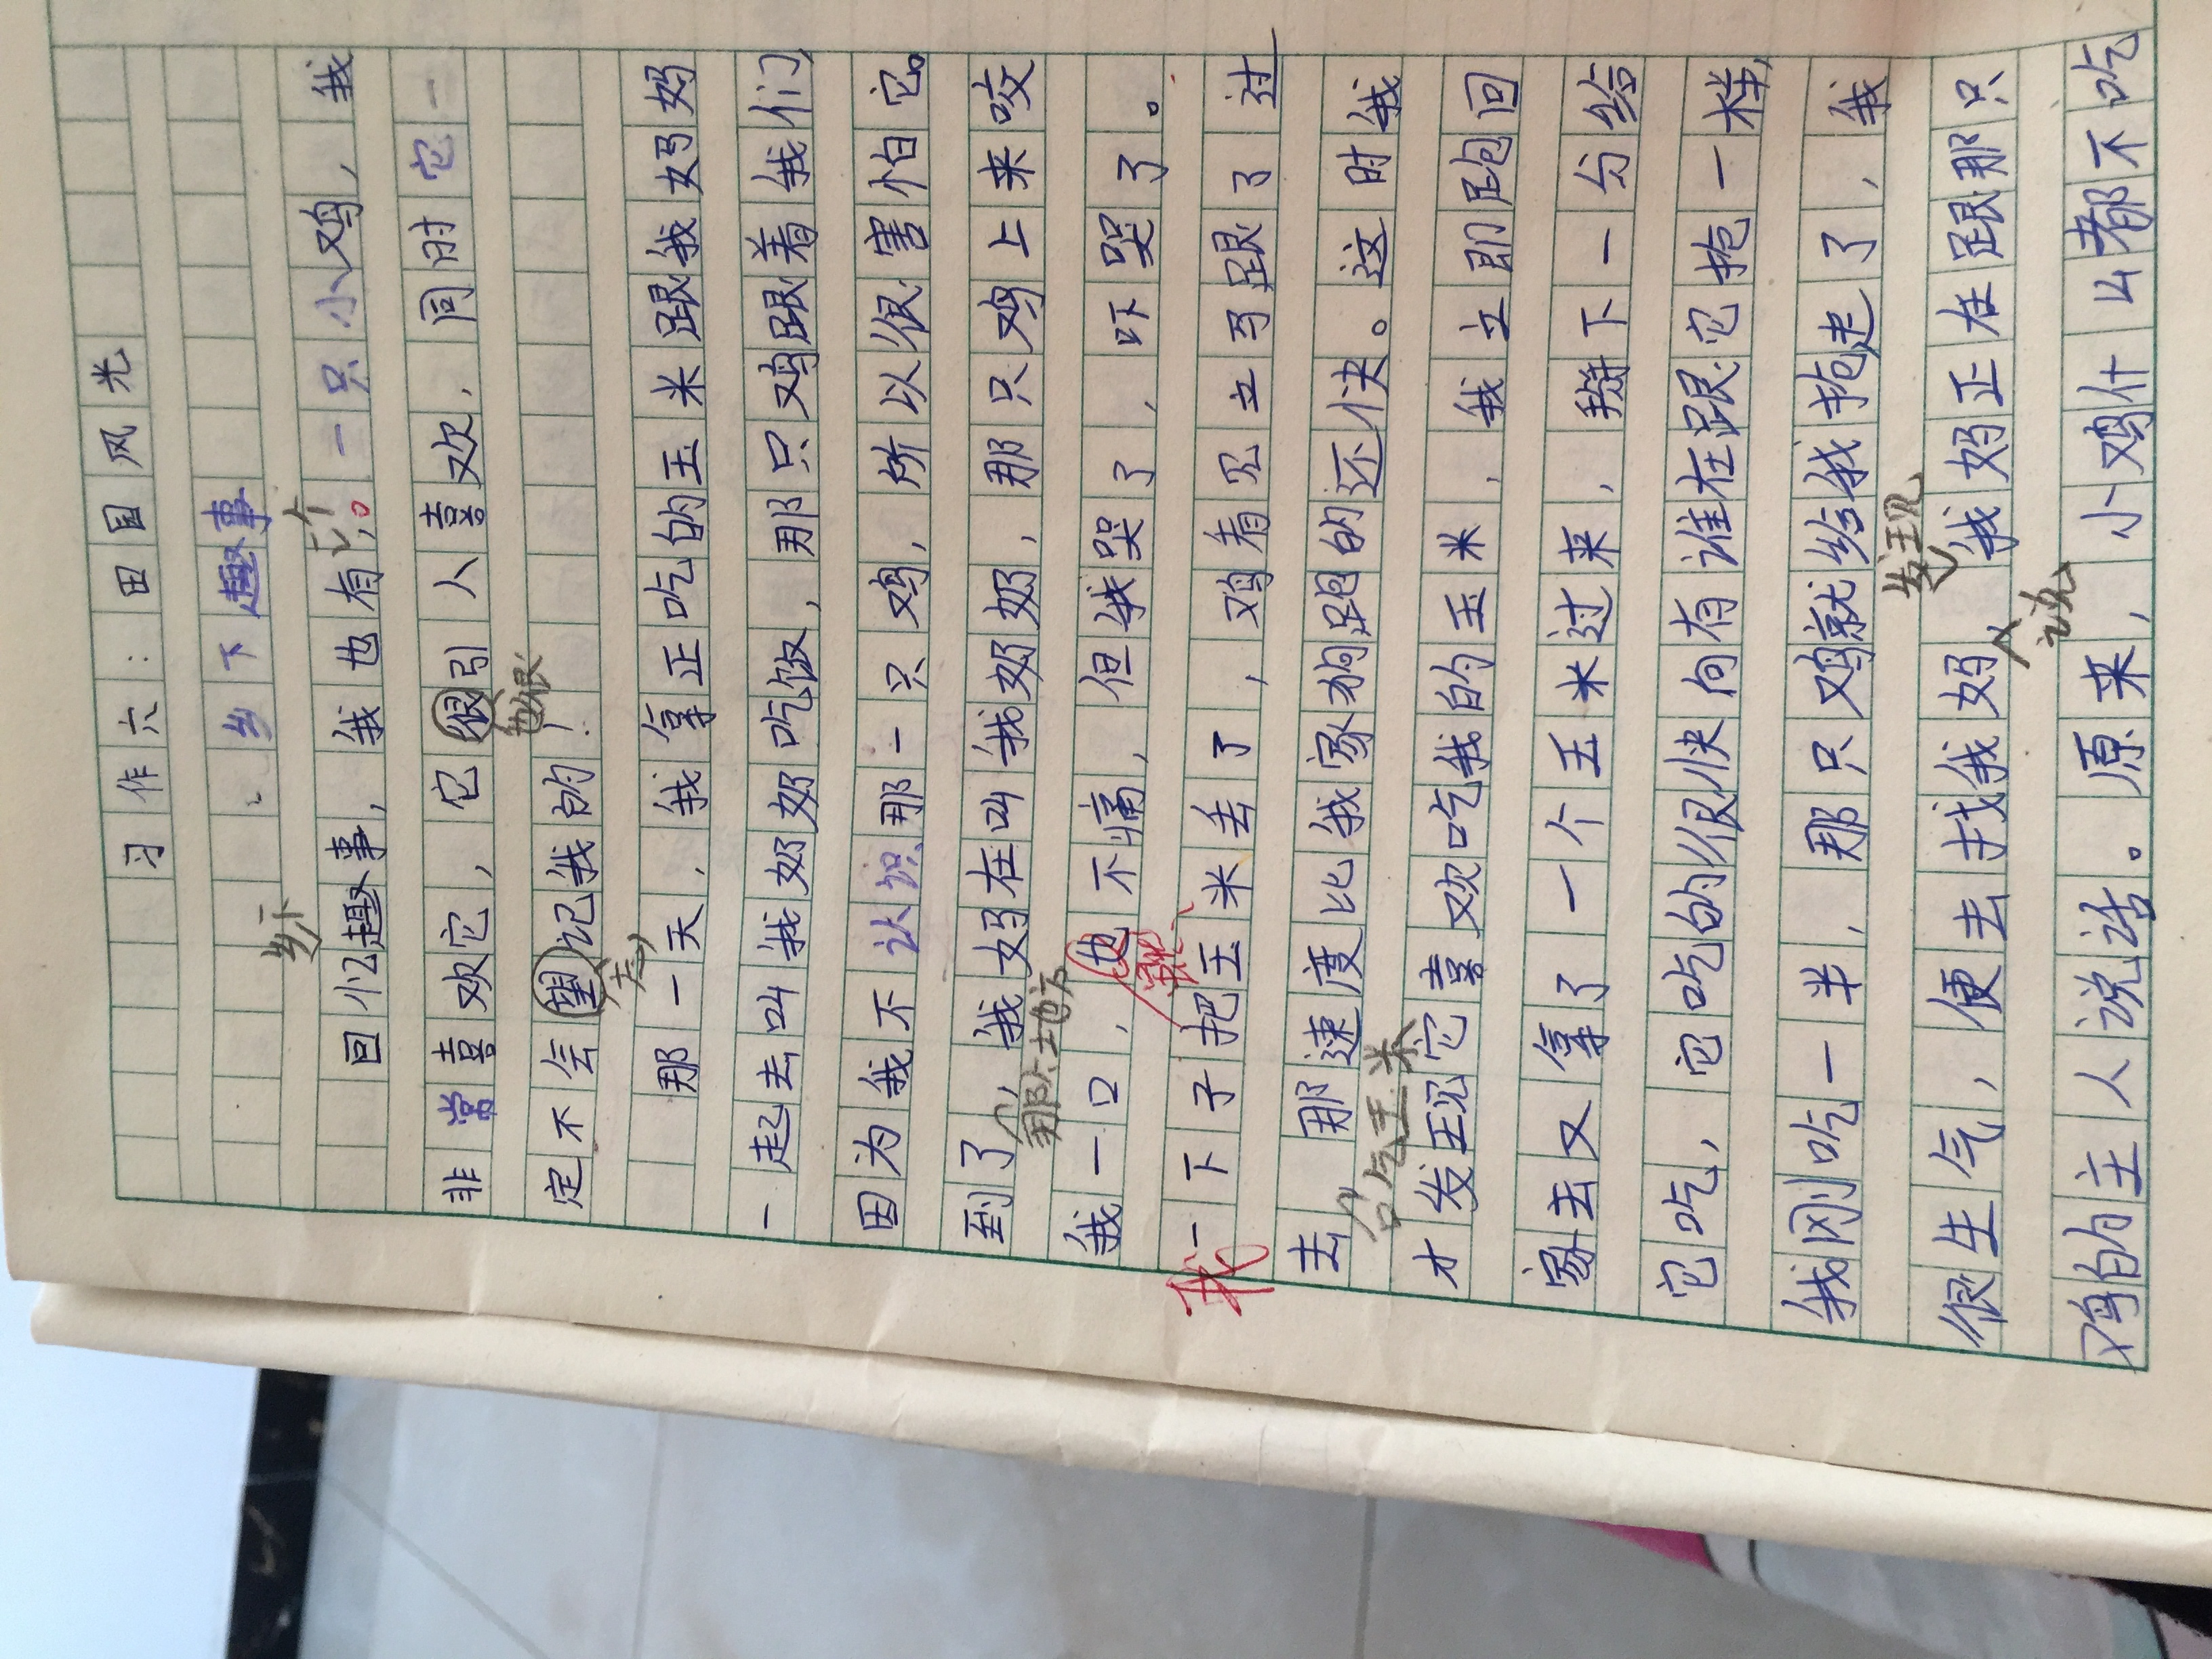 习作六：田园风光
乡下趣事
乡下
回忆趣事，我也有一个。一只小鸡，我
非常喜欢它，它很引人喜欢，同时它一
也很
定不会望记我的！
忘
那一天，我拿正吃的玉米跟我奶奶
一起去叫我奶奶吃饭，那只鸡跟着我们
因为我不认识那一只鸡，所以很害怕它。
到了，我妈在叫我奶奶，那只鸡上来咬
那个地方
我一口，也不痛，但我哭了，吓哭了。
我一下子把玉米丢了，鸡看见立马跟了过
去 那速度比我家狗跑的还快。这时我
吃玉米
才发现它喜欢吃我的玉米，我立即跑回
家去又拿了一个玉米过来，掰下一分给
它吃，它吃的很快向有谁在跟它抢一样，
我刚吃一半，那只鸡就给我抢走了，我
发现
很生气，便去找我妈，我妈正在跟那只
说
鸡的主人说话。原来，小鸡什么都不吃